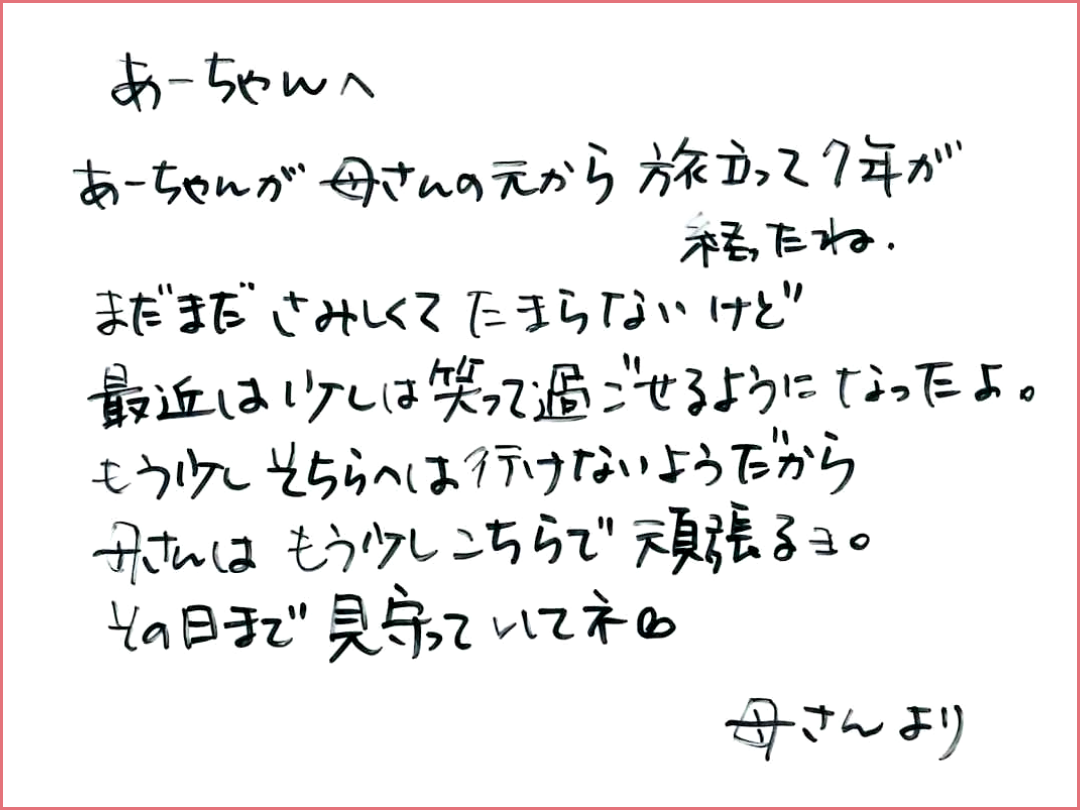 あーちゃんへ
あーちゃんが 母さんの元から 旅立って7年が
経ったね.
まだまだ さみしくて たまらないけど
最近は少しは笑って過ごせるようになったよ。
もう少し そちらへは行けないようだから
母さんは もう少しこちらで 頑張るヨ。
その日まで 見守っていてネ
母さんより